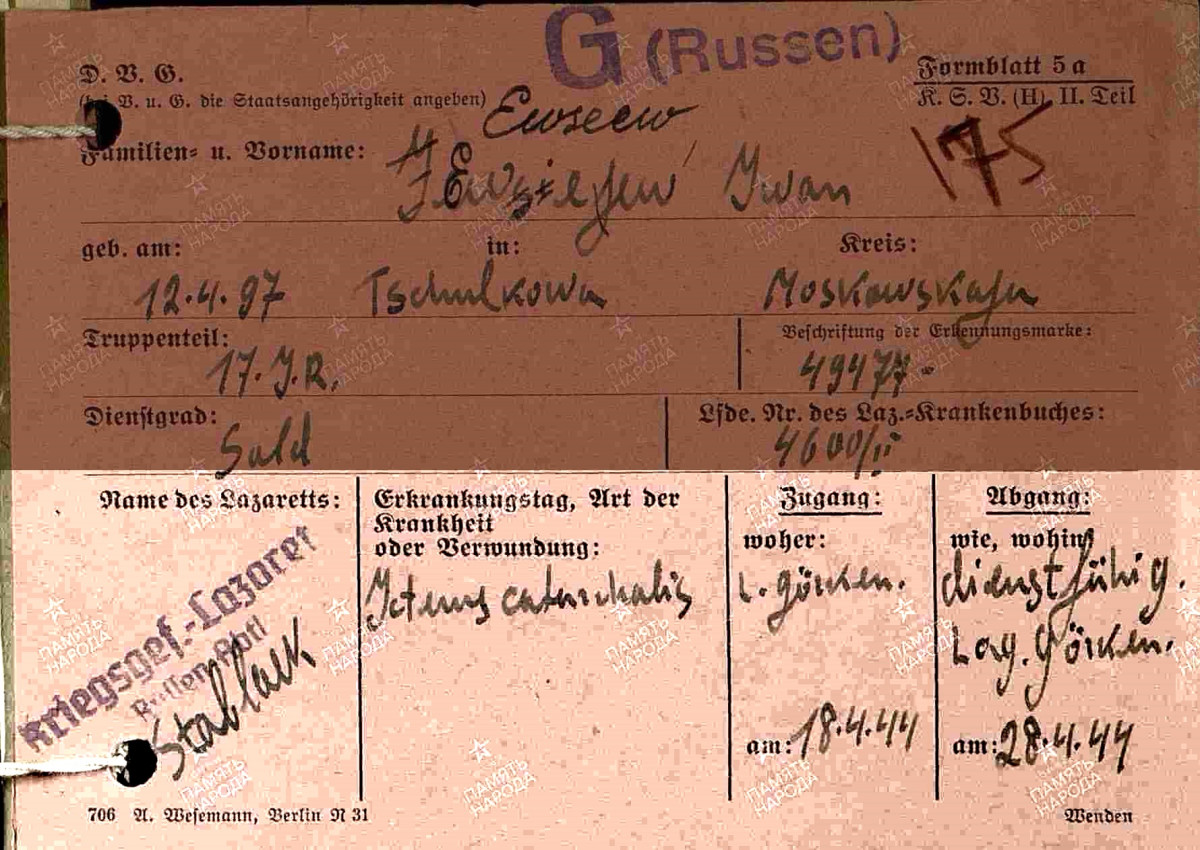 G (Russen)
D. V. G.
V. u. G. die Staatsangehörigkeit angeben)
Formblatt 5a
K. S. V. (H) II. Teil
Ewseew
175
Familien- u. Vorname:
Iwan
geb. am: in: Kreis:
12.4.97 Tschulkowa Moskowskaja
Truppenteil: Beschriftung der Erkennungsmarke:
17. J.R. 49477
Dienstgrad: Lfde. Nr. des Laz.=Krankenbuches:
Sold 4600/II
Name des Lazaretts: Erkrankungstag, Art der Krankheit oder Verwundung: Zugang: Abgang:
woher: wie, wohin
Kriegsgef.-Lazaret
Stablack
Ikterus catarrhalis
L. Görken.
dienstfähig.
Lag. Görken.
am: 18.4.44 am: 28.4.44
706 A. Wesemann, Berlin N 31 Wenden
ПАМЯТЬ НАРОДА